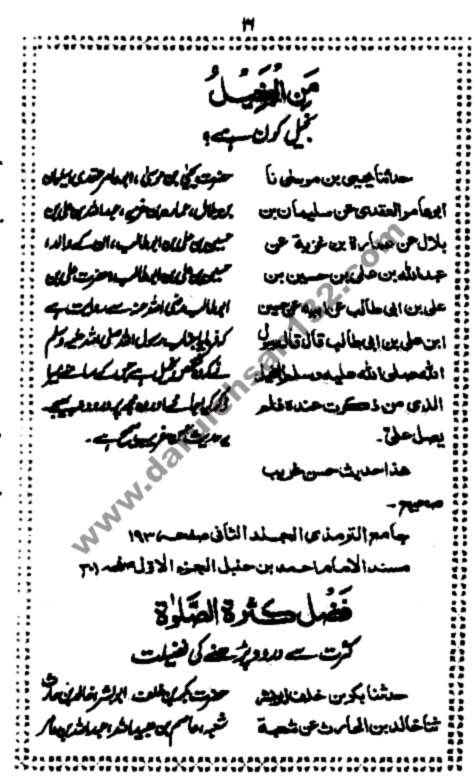 ۳۱
مَنِ الْبَخِيلُ
بخیل کون ہے؟
حدثنا يحيى بن موسى نا
ابو عامر العقدى عن سليمان بن
بلال عن عمارة بن غزية عن
عبدالله بن على بن حسين بن
على بن ابى طالب عن ابيه عن حسين
ابن على بن ابى طالب قال قال رسول
الله صلى الله عليه وسلم البخيل
الذى من ذكرت عنده فلم
يصل على۔
هذا حديث حسن غريب
صحيح۔
حضرت یحییٰ بن موسیٰ، ابو عامر عقدی، سلیمان
بن بلال، عمارہ بن غزیہ، عبداللہ بن علی بن
حسین بن علی بن ابو طالب، ان کے والد،
حسین بن علی بن ابو طالب، حضرت علی بن
ابو طالب رضی اللہ عنہ سے روایت ہے
کہ فرمایا جناب رسول اللہ صلی اللہ علیہ وسلم
نے کہ وہ شخص بخیل ہے جس کے سامنے میرا
ذکر کیا جائے اور وہ مجھ پر درود نہ بھیجے۔
یہ حدیث حسن غریب صحیح ہے۔
جامع الترمذى المجلد الثانى صفحہ ۱۹۳
مسند الامام احمد بن حنبل الجزء الاول صفحہ ۲۰۱
فَضْلُ كَثْرَةِ الصَّلٰوةِ
کثرت سے درود پڑھنے کی فضیلت
حدثنا بكر بن خلف ابو بشر
ثنا خالد بن الحارث عن شعبة
حضرت بکر بن خلف، ابو بشر، خالد بن حارث
شعبہ، عاصم بن عبیداللہ، عبداللہ بن عامر
www.darulehsan132.com